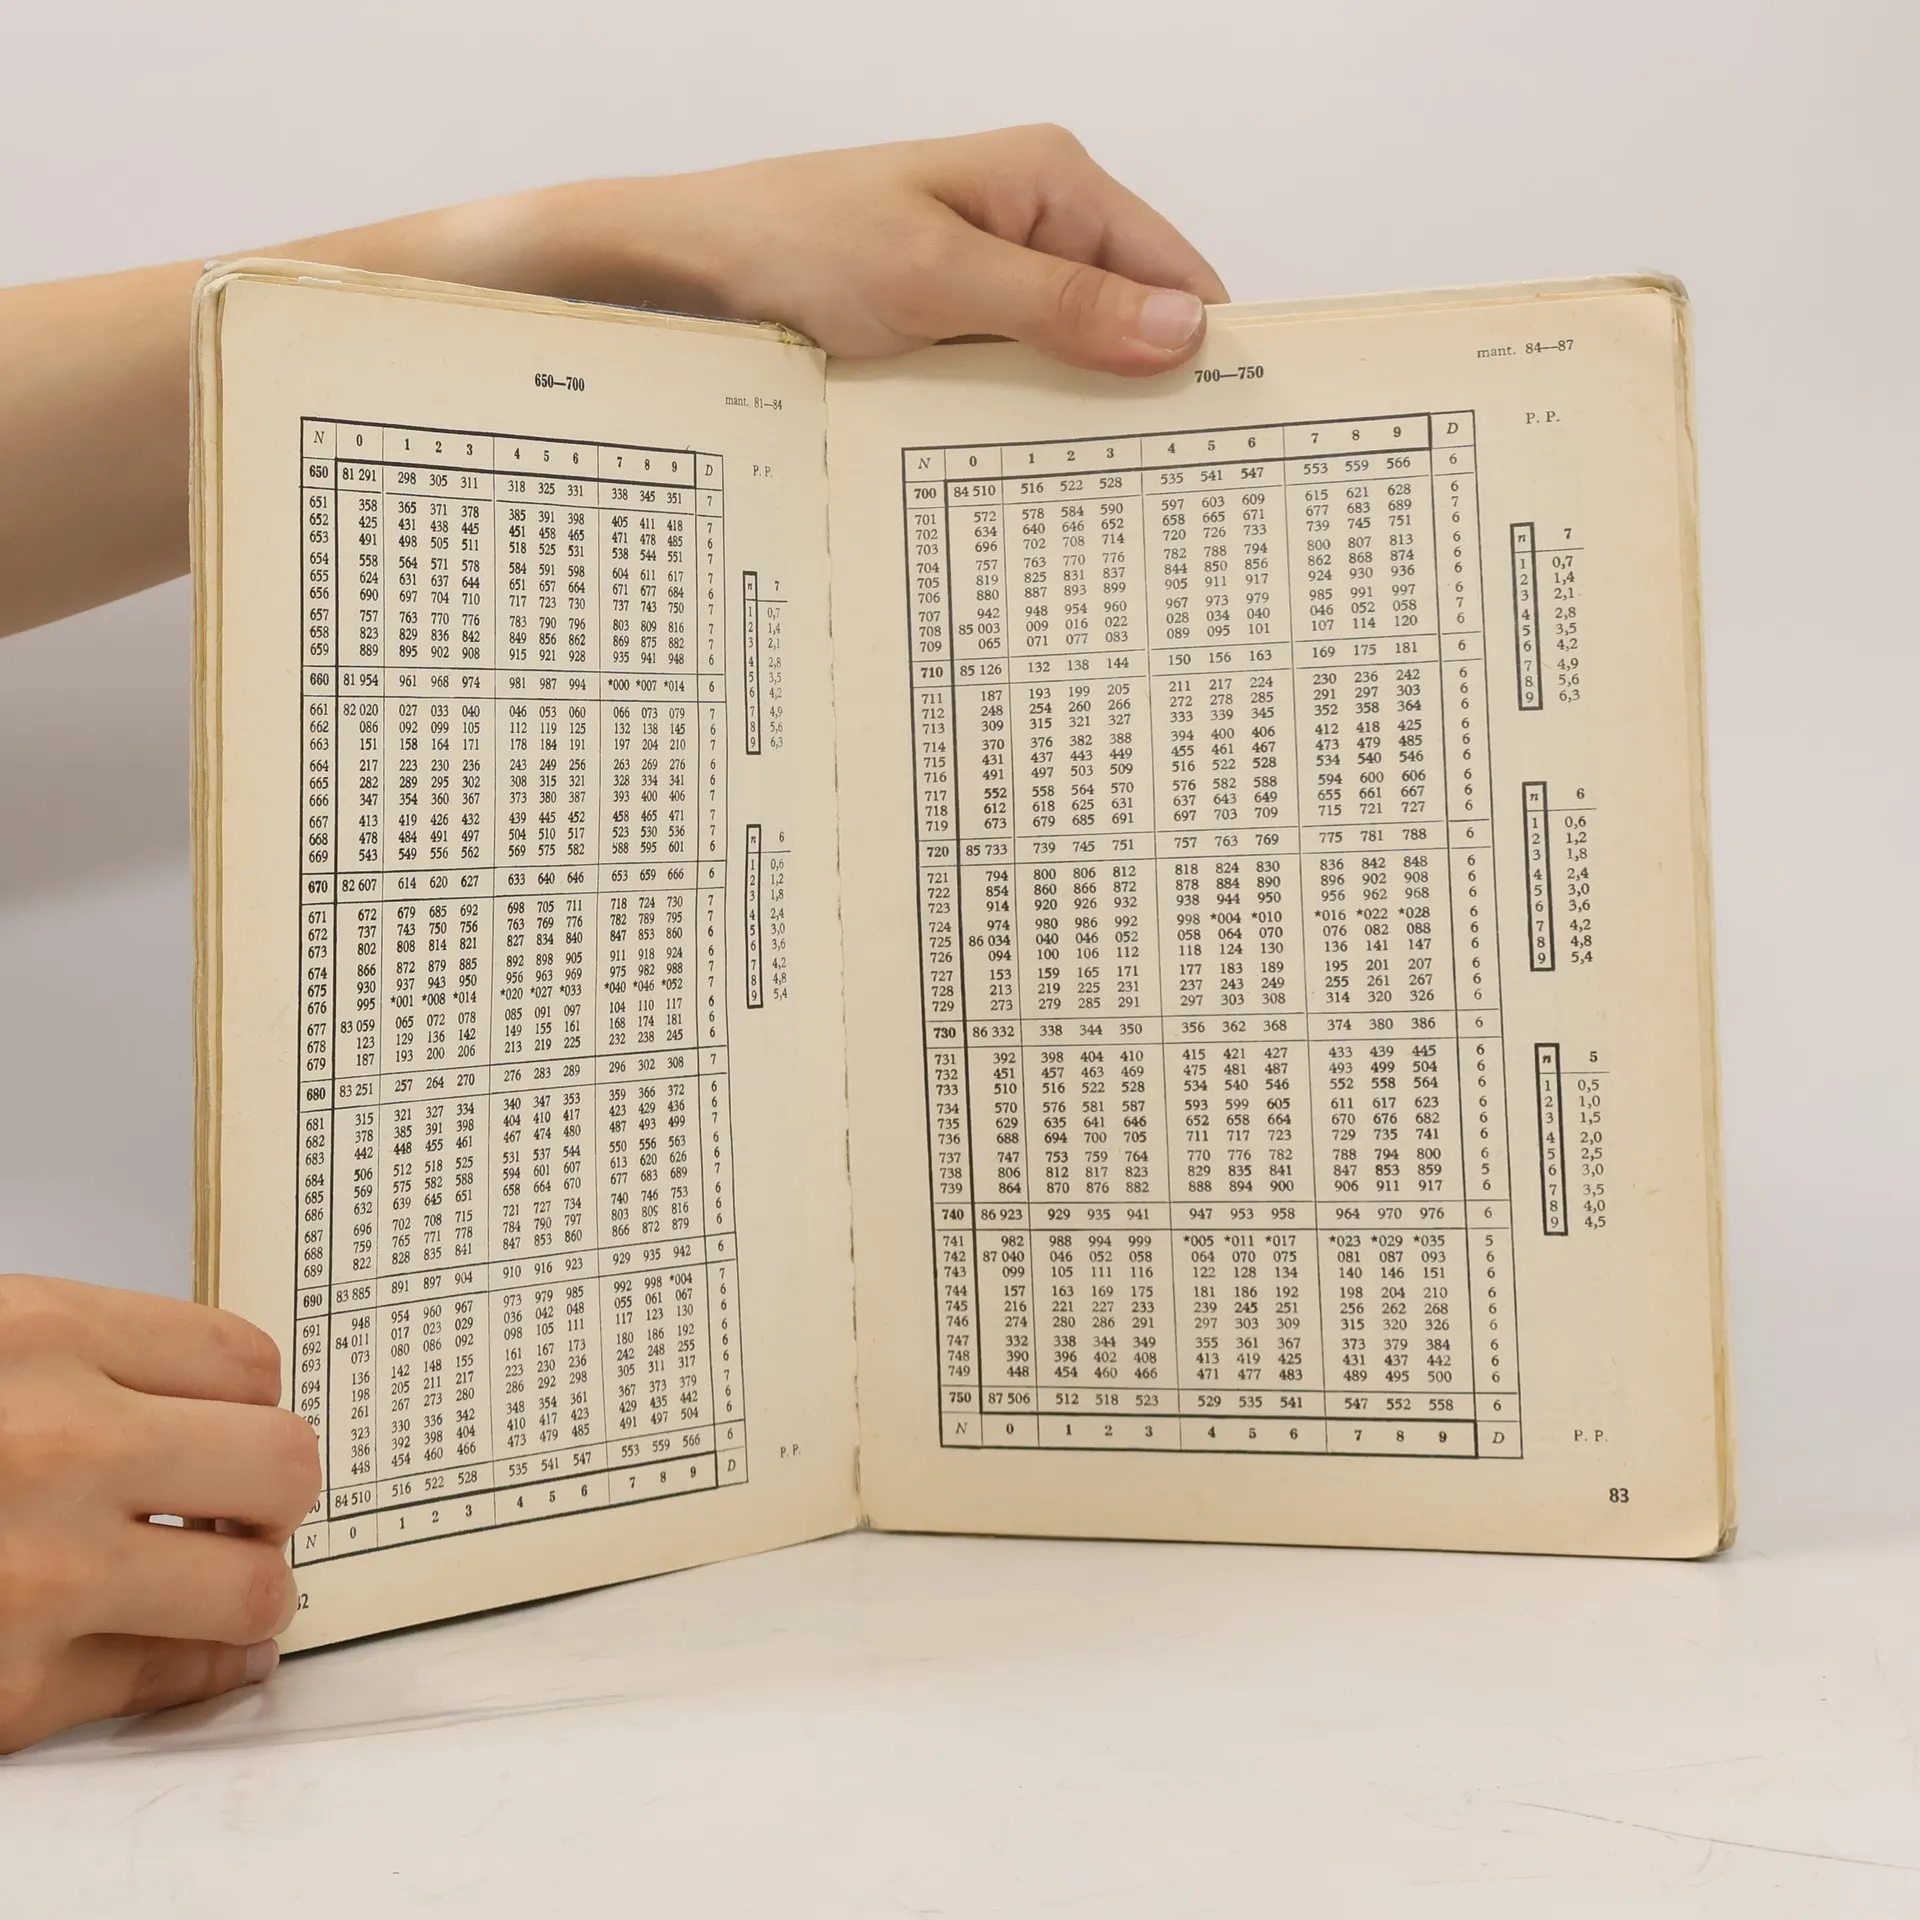 650—700
mant. 81—84
N 0 1 2 3 4 5 6 7 8 9 D
650 81 291 298 305 311 318 325 331 338 345 351 7
651 358 365 371 378 385 391 398 405 411 418 7
652 425 431 438 445 451 458 465 471 478 485 6
653 491 498 505 511 518 525 531 538 544 551 7
654 558 564 571 578 584 591 598 604 611 617 7
655 624 631 637 644 651 657 664 671 677 684 6
656 690 697 704 710 717 723 730 737 743 750 7
657 757 763 770 776 783 790 796 803 809 816 7
658 823 829 836 842 849 856 862 869 875 882 7
659 889 895 902 908 915 921 928 935 941 948 6
660 81 954 961 968 974 981 987 994 *000 *007 *014 6
661 82 020 027 033 040 046 053 060 066 073 079 7
662 086 092 099 105 112 119 125 132 138 145 6
663 151 158 164 171 178 184 191 197 204 210 7
664 217 223 230 236 243 249 256 263 269 276 6
665 282 289 295 302 308 315 321 328 334 341 6
666 347 354 360 367 373 380 387 393 400 406 7
667 413 419 426 432 439 445 452 458 465 471 7
668 478 484 491 497 504 510 517 523 530 536 7
669 543 549 556 562 569 575 582 588 595 601 6
670 82 607 614 620 627 633 640 646 653 659 666 6
671 672 679 685 692 698 705 711 718 724 730 7
672 737 743 750 756 763 769 776 782 789 795 7
673 802 808 814 821 827 834 840 847 853 860 6
674 866 872 879 885 892 898 905 911 918 924 6
675 930 937 943 950 956 963 969 975 982 988 7
676 995 *001 *008 *014 *020 *027 *033 *040 *046 *052 7
677 83 059 065 072 078 085 091 097 104 110 117 6
678 123 129 136 142 149 155 161 168 174 181 6
679 187 193 200 206 213 219 225 232 238 245 6
680 83 251 257 264 270 276 283 289 296 302 308 7
681 315 321 327 334 340 347 353 359 366 372 6
682 378 385 391 398 404 410 417 423 429 436 6
683 442 448 455 461 467 474 480 487 493 499 7
684 506 512 518 525 531 537 544 550 556 563 6
685 569 575 582 588 594 601 607 613 620 626 6
686 632 639 645 651 658 664 670 677 683 689 7
687 696 702 708 715 721 727 734 740 746 753 6
688 759 765 771 778 784 790 797 803 809 816 6
689 822 828 835 841 847 853 860 866 872 879 6
690 83 885 891 897 904 910 916 923 929 935 942 6
691 948 954 960 967 973 979 985 992 998 *004 7
692 84 011 017 023 029 036 042 048 055 061 067 6
693 073 080 086 092 098 105 111 117 123 130 6
694 136 142 148 155 161 167 173 180 186 192 6
695 198 205 211 217 223 230 236 242 248 255 6
261 267 273 280 286 292 298 305 311 317 6
323 330 336 342 348 354 361 367 373 379 7
386 392 398 404 410 417 423 429 435 442 6
448 454 460 466 473 479 485 491 497 504 6
84 510 516 522 528 535 541 547 553 559 566 6
N 0 1 2 3 4 5 6 7 8 9 D
P. P.
n 7
1 0,7
2 1,4
3 2,1
4 2,8
5 3,5
6 4,2
7 4,9
8 5,6
9 6,3
n 6
1 0,6
2 1,2
3 1,8
4 2,4
5 3,0
6 3,6
7 4,2
8 4,8
9 5,4
P. P.
700—750
mant. 84—87
N 0 1 2 3 4 5 6 7 8 9 D
700 84 510 516 522 528 535 541 547 553 559 566 6
701 572 578 584 590 597 603 609 615 621 628 6
702 634 640 646 652 658 665 671 677 683 689 7
703 696 702 708 714 720 726 733 739 745 751 6
704 757 763 770 776 782 788 794 800 807 813 6
705 819 825 831 837 844 850 856 862 868 874 6
706 880 887 893 899 905 911 917 924 930 936 6
707 942 948 954 960 967 973 979 985 991 997 6
708 85 003 009 016 022 028 034 040 046 052 058 7
709 065 071 077 083 089 095 101 107 114 120 6
710 85 126 132 138 144 150 156 163 169 175 181 6
711 187 193 199 205 211 217 224 230 236 242 6
712 248 254 260 266 272 278 285 291 297 303 6
713 309 315 321 327 333 339 345 352 358 364 6
714 370 376 382 388 394 400 406 412 418 425 6
715 431 437 443 449 455 461 467 473 479 485 6
716 491 497 503 509 516 522 528 534 540 546 6
717 552 558 564 570 576 582 588 594 600 606 6
718 612 618 625 631 637 643 649 655 661 667 6
719 673 679 685 691 697 703 709 715 721 727 6
720 85 733 739 745 751 757 763 769 775 781 788 6
721 794 800 806 812 818 824 830 836 842 848 6
722 854 860 866 872 878 884 890 896 902 908 6
723 914 920 926 932 938 944 950 956 962 968 6
724 974 980 986 992 998 *004 *010 *016 *022 *028 6
725 86 034 040 046 052 058 064 070 076 082 088 6
726 094 100 106 112 118 124 130 136 141 147 6
727 153 159 165 171 177 183 189 195 201 207 6
728 213 219 225 231 237 243 249 255 261 267 6
729 273 279 285 291 297 303 308 314 320 326 6
730 86 332 338 344 350 356 362 368 374 380 386 6
731 392 398 404 410 415 421 427 433 439 445 6
732 451 457 463 469 475 481 487 493 499 504 6
733 510 516 522 528 534 540 546 552 558 564 6
734 570 576 581 587 593 599 605 611 617 623 6
735 629 635 641 646 652 658 664 670 676 682 6
736 688 694 700 705 711 717 723 729 735 741 6
737 747 753 759 764 770 776 782 788 794 800 6
738 806 812 817 823 829 835 841 847 853 859 5
739 864 870 876 882 888 894 900 906 911 917 6
740 86 923 929 935 941 947 953 958 964 970 976 6
741 982 988 994 999 *005 *011 *017 *023 *029 *035 5
742 87 040 046 052 058 064 070 075 081 087 093 6
743 099 105 111 116 122 128 134 140 146 151 6
744 157 163 169 175 181 186 192 198 204 210 6
745 216 221 227 233 239 245 251 256 262 268 6
746 274 280 286 291 297 303 309 315 320 326 6
747 332 338 344 349 355 361 367 373 379 384 6
748 390 396 402 408 413 419 425 431 437 442 6
749 448 454 460 466 471 477 483 489 495 500 6
750 87 506 512 518 523 529 535 541 547 552 558 6
N 0 1 2 3 4 5 6 7 8 9 D
P. P.
n 7
1 0,7
2 1,4
3 2,1
4 2,8
5 3,5
6 4,2
7 4,9
8 5,6
9 6,3
n 6
1 0,6
2 1,2
3 1,8
4 2,4
5 3,0
6 3,6
7 4,2
8 4,8
9 5,4
n 5
1 0,5
2 1,0
3 1,5
4 2,0
5 2,5
6 3,0
7 3,5
8 4,0
9 4,5
P. P.
83